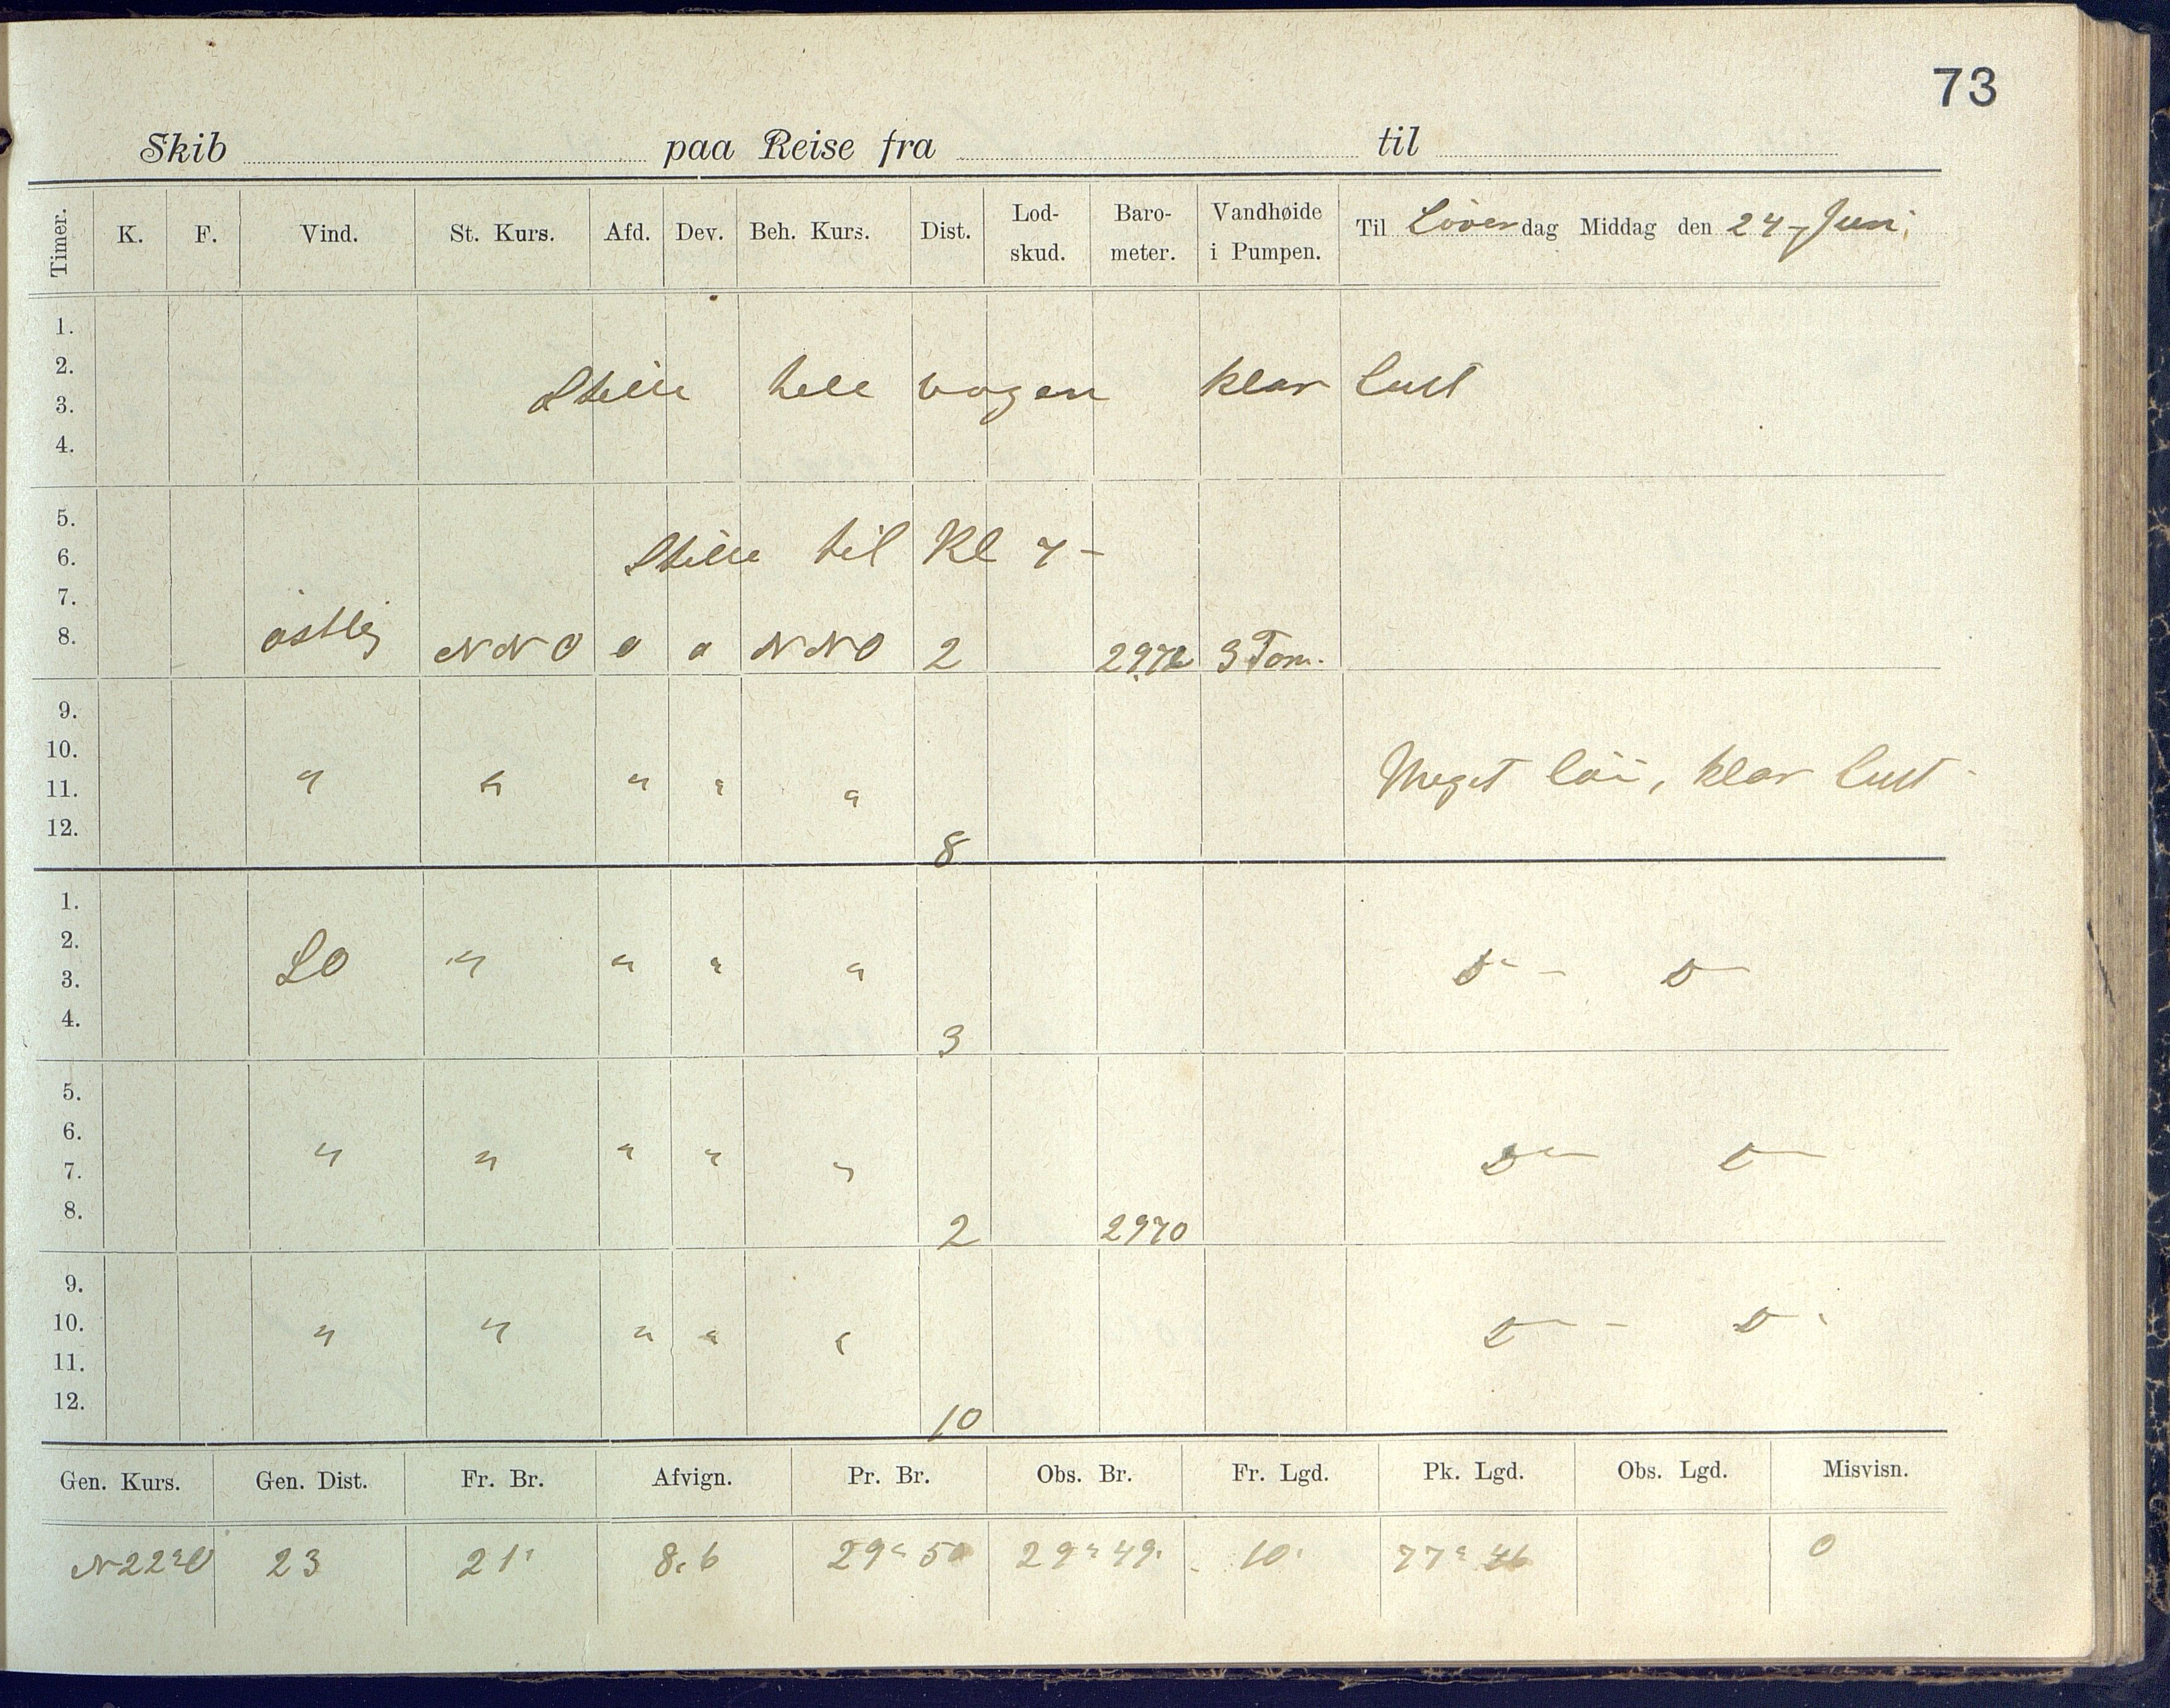 73
Skib paa Reise fra til
Timer. K. F. Vind. St. Kurs. Afd. Dev. Beh. Kurs. Dist. Lod-skud. Baro-meter. Vandhøide i Pumpen. Til Löverdag Middag den 24-Juni
1.
2.
Stille hele vagen klar luft
3.
4.
5.
6. Stille til Kl 7-
7.
8. östlig NNO 0 0 NNO 2 29.72 3 Tom.
9.
10.
11. " " " " " Meget löi, klar luft
12. 8
1.
2.
3. SO " " " " Do Do
4. 3
5.
6.
7. " " " " " Do Do
8. 2 2970
9.
10. " " " " " Do Do
11.
12. 10
Gen. Kurs. Gen. Dist. Fr. Br. Afvign. Pr. Br. Obs. Br. Fr. Lgd. Pk. Lgd. Obs. Lgd. Misvisn.
N22°O 23 21' 8.6 29° 50 29° 49' 10' 77° 46 0